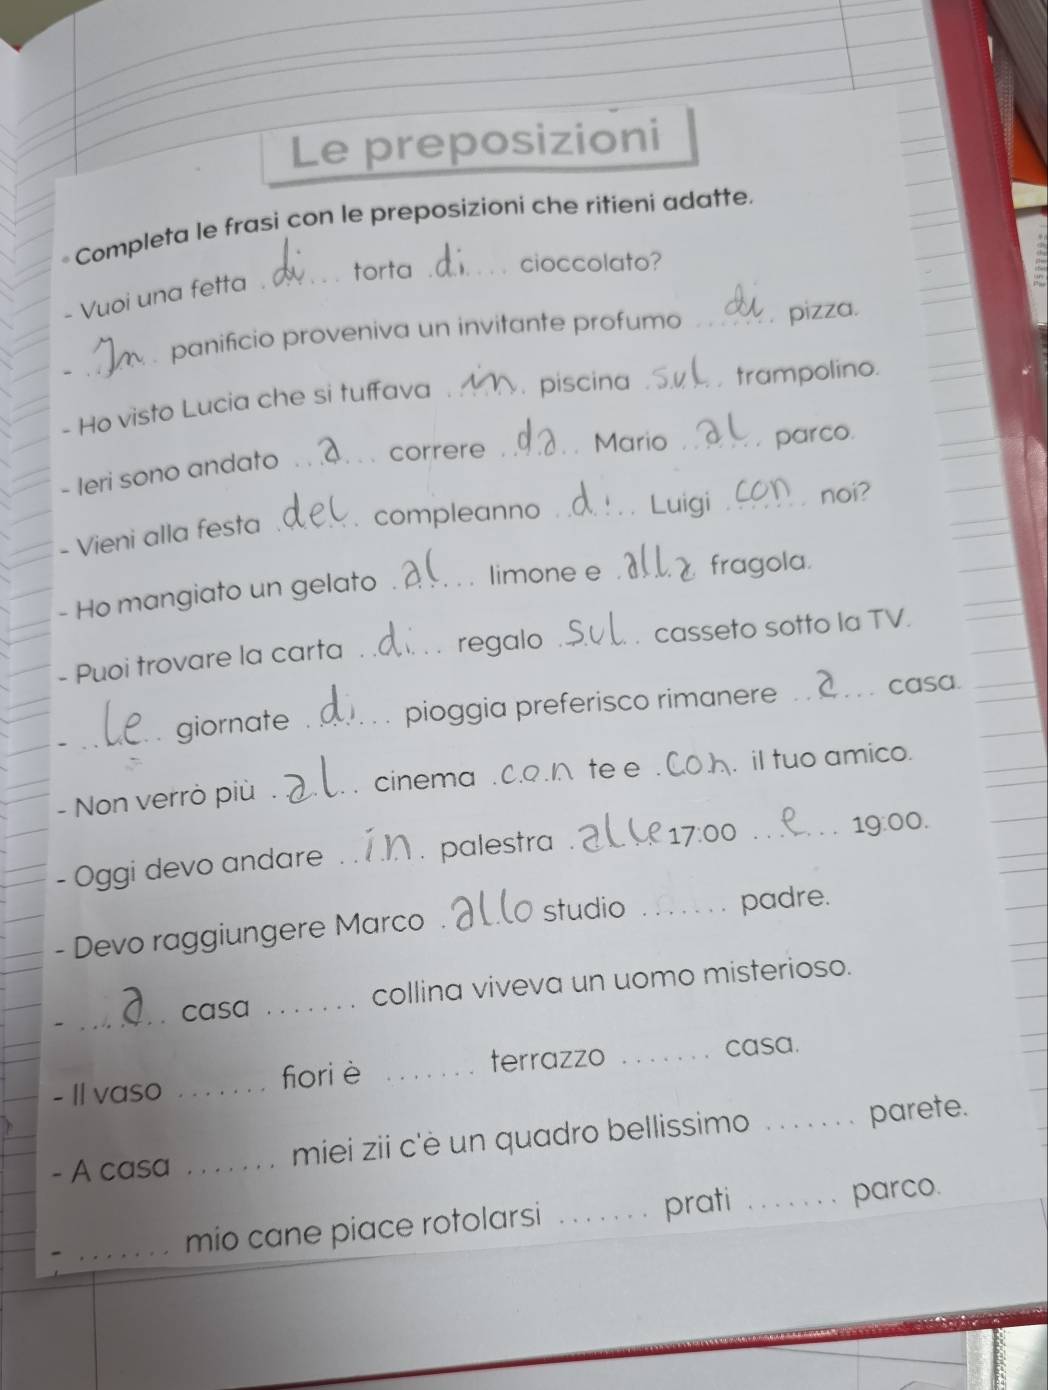 Le preposizioni
Completa le frasi con le preposizioni che ritieni adatte.
- Vuoi una fetta . di . . . torta . di . . . cioccolato?
- . . In . . panificio proveniva un invitante profumo . . di . . pizza.
- Ho visto Lucia che si tuffava . . in . . piscina . sul . . trampolino.
- Ieri sono andato . . a . . . correre . . da . . Mario . . al . . parco.
- Vieni alla festa . del . . compleanno . . di . . Luigi . con . . noi?
- Ho mangiato un gelato . al . . . limone e . alla fragola.
- Puoi trovare la carta . . di . . . regalo . sul . . casseto sotto la TV.
- . . Le . . giornate . . di . . . pioggia preferisco rimanere . . a . . . casa.
- Non verrò più . . al . . cinema . con te e . con . il tuo amico.
- Oggi devo andare . . in . . palestra . alle 17:00 . . . e . . . 19:00.
- Devo raggiungere Marco . allo studio . . . . . . . padre.
- . . . a . . casa . . . . . . . collina viveva un uomo misterioso.
- Il vaso . . . . . . . fiori è . . . . . . . terrazzo . . . . . . . casa.
- A casa . . . . . . . miei zii c'è un quadro bellissimo . . . . . . . parete.
- . . . . . . . mio cane piace rotolarsi . . . . . . . prati . . . . . . . parco.